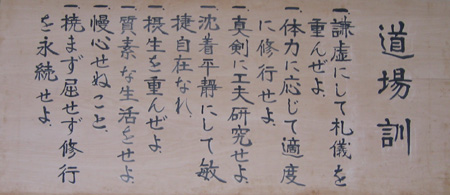 道場訓
一、謙虚にして札儀を
重んぜよ
一、体力に応じて適度
に修行せよ
一、真剣に工夫研究せよ
一、沈着平静にして敏
捷自在なれ
一、摂生を重んぜよ
一、質素な生活をせよ
一、慢心せぬこと
一、撓まず屈せず修行
を永続せよ